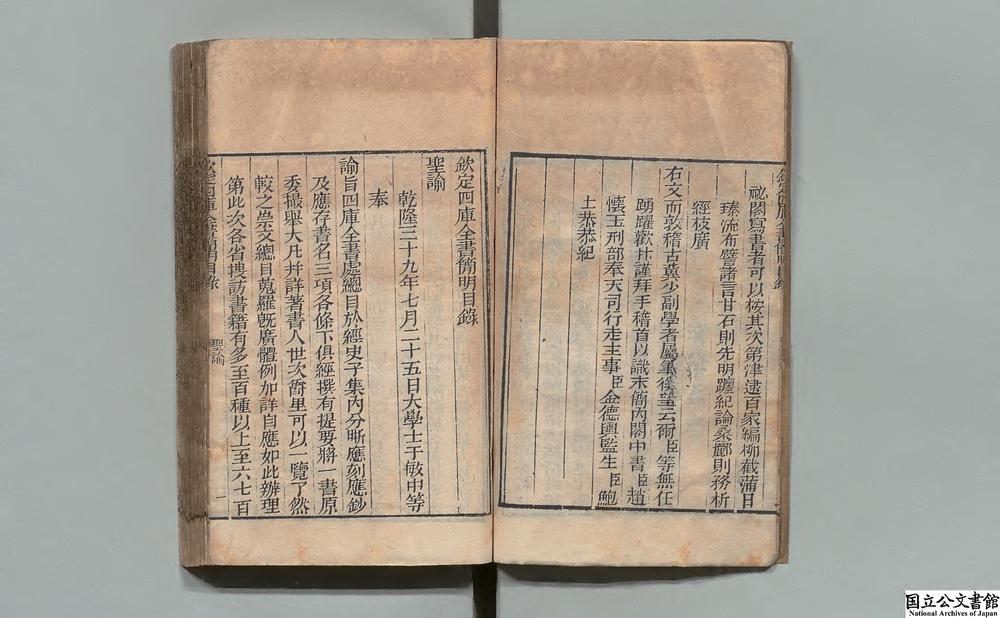 祕閣寫書者可以按其次第津逮百家編柳截蒲日
臻流布譬諸言甘石則先明躔紀論桑酈則務析
經枝廣
右文而敦稽古冀少副學者屬望云爾臣等無任
踴躍歡抃謹拜手稽首以識末簡內閣中書臣趙
懷玉刑部奉天司行走主事臣金德輿監生臣鮑
士恭恭紀
欽定四庫全書簡明目錄
聖諭
乾隆三十九年七月二十五日大學士于敏中等
奉
諭旨四庫全書處總目於經史子集內分晰應刻應鈔
及應存書名三項各條下俱經撰有提要將一書原
委撮舉大凡并詳著書人世次爵里可以一覽了然
較之崇文總目蒐羅旣廣體例加詳自應如此辦理
第此次各省搜訪書籍有多至百種以上至六七百
欽定四庫全書簡明目錄
聖諭
一
国立公文書館
National Archives of Japan